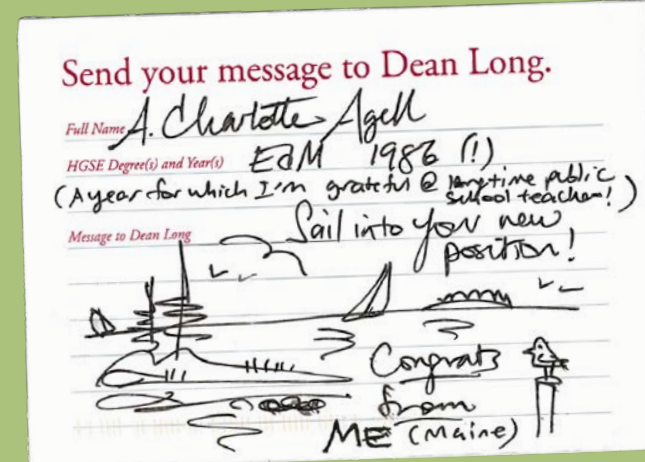 Send your message to Dean Long.
Full Name A. Charlotte Agell
HGSE Degree(s) and Year(s) EdM 1986 (!)
(A year for which I'm grateful @ longtime public
school teacher!)
Message to Dean Long Sail into your new
position!
Congrats
from
ME (Maine)